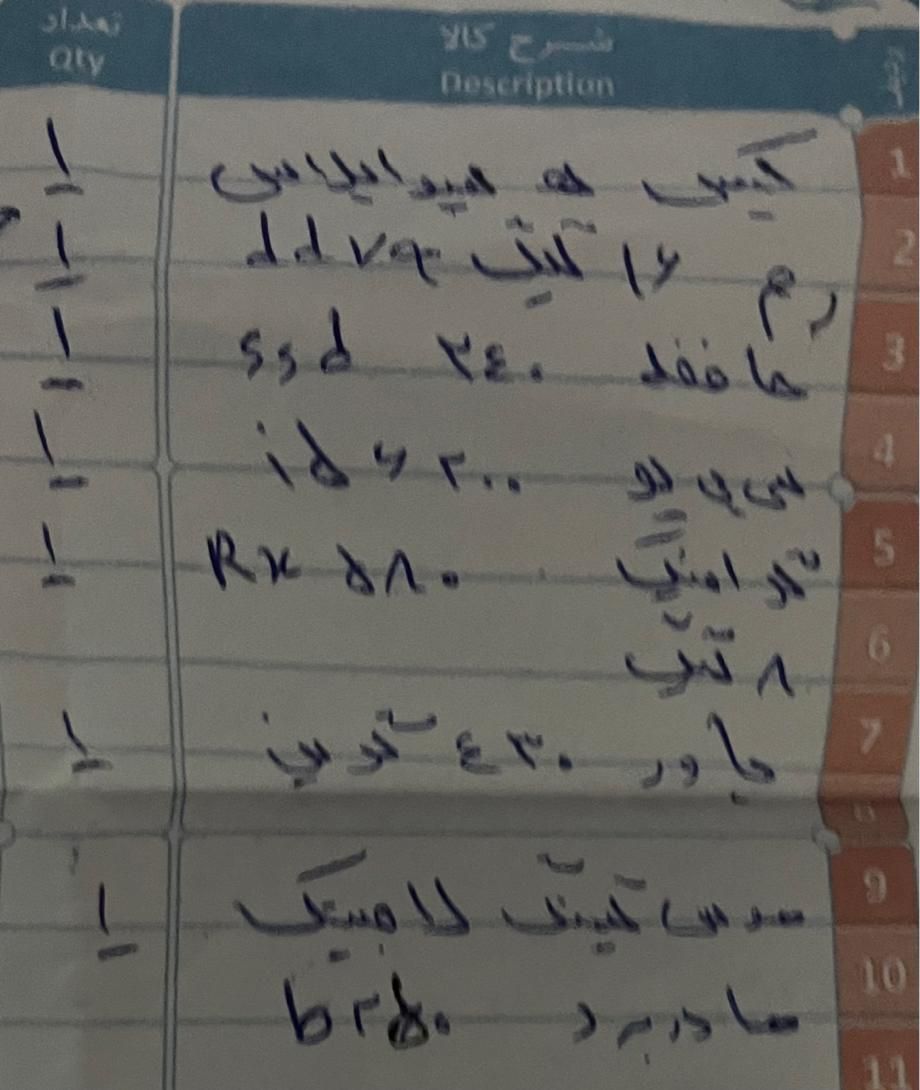 تعداد شرح کالا ردیف
Qty Description
1 کیس ۵ میدا ایلاس ۱
2 رم ۱۶ گیگ ddr۴ ۱
3 حافظه ۲۴۰ ssd ۱
4 سی پی یو i۵ ۶۴۰۰ ۱
5 گرافیک Rx ۵۸۰ ۱
6 ۸ گیگ
7 پاور ۴۳۰ گرین ۱
8
9 موس گیمینگ لاجیتک ۱
10 مادربرد b۲۵۰
11